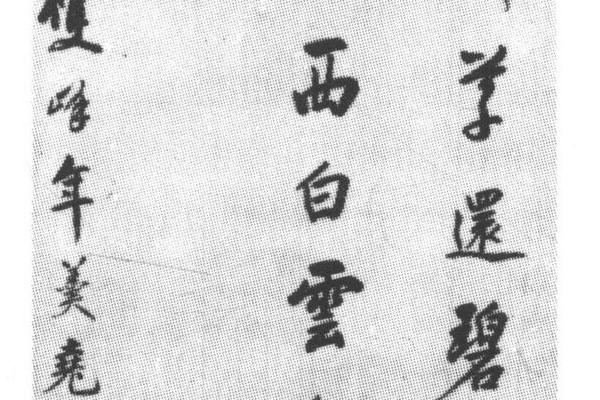 草還碧
西白雲
雙峰年羹堯